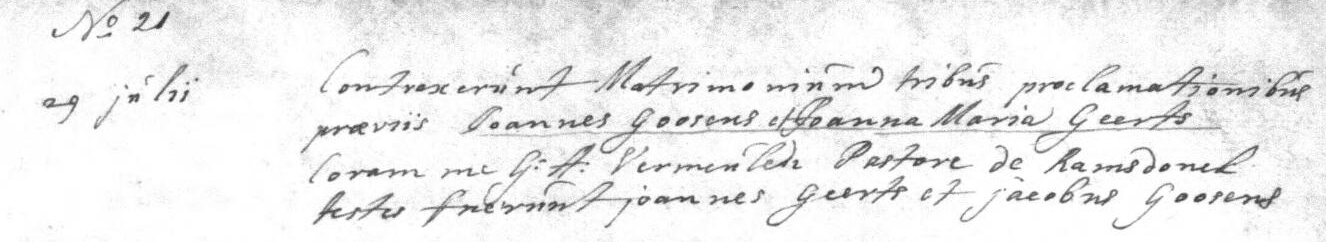 No 21
29 julii Contraxerunt Matrimonium tribus proclamationibus
præviis Joannes Goosens et Joanna Maria Geerts
Coram me G: A: Vermeulen Pastore de Ramsdonck
testes fuerunt joannes Geerts et jacobus Goosens